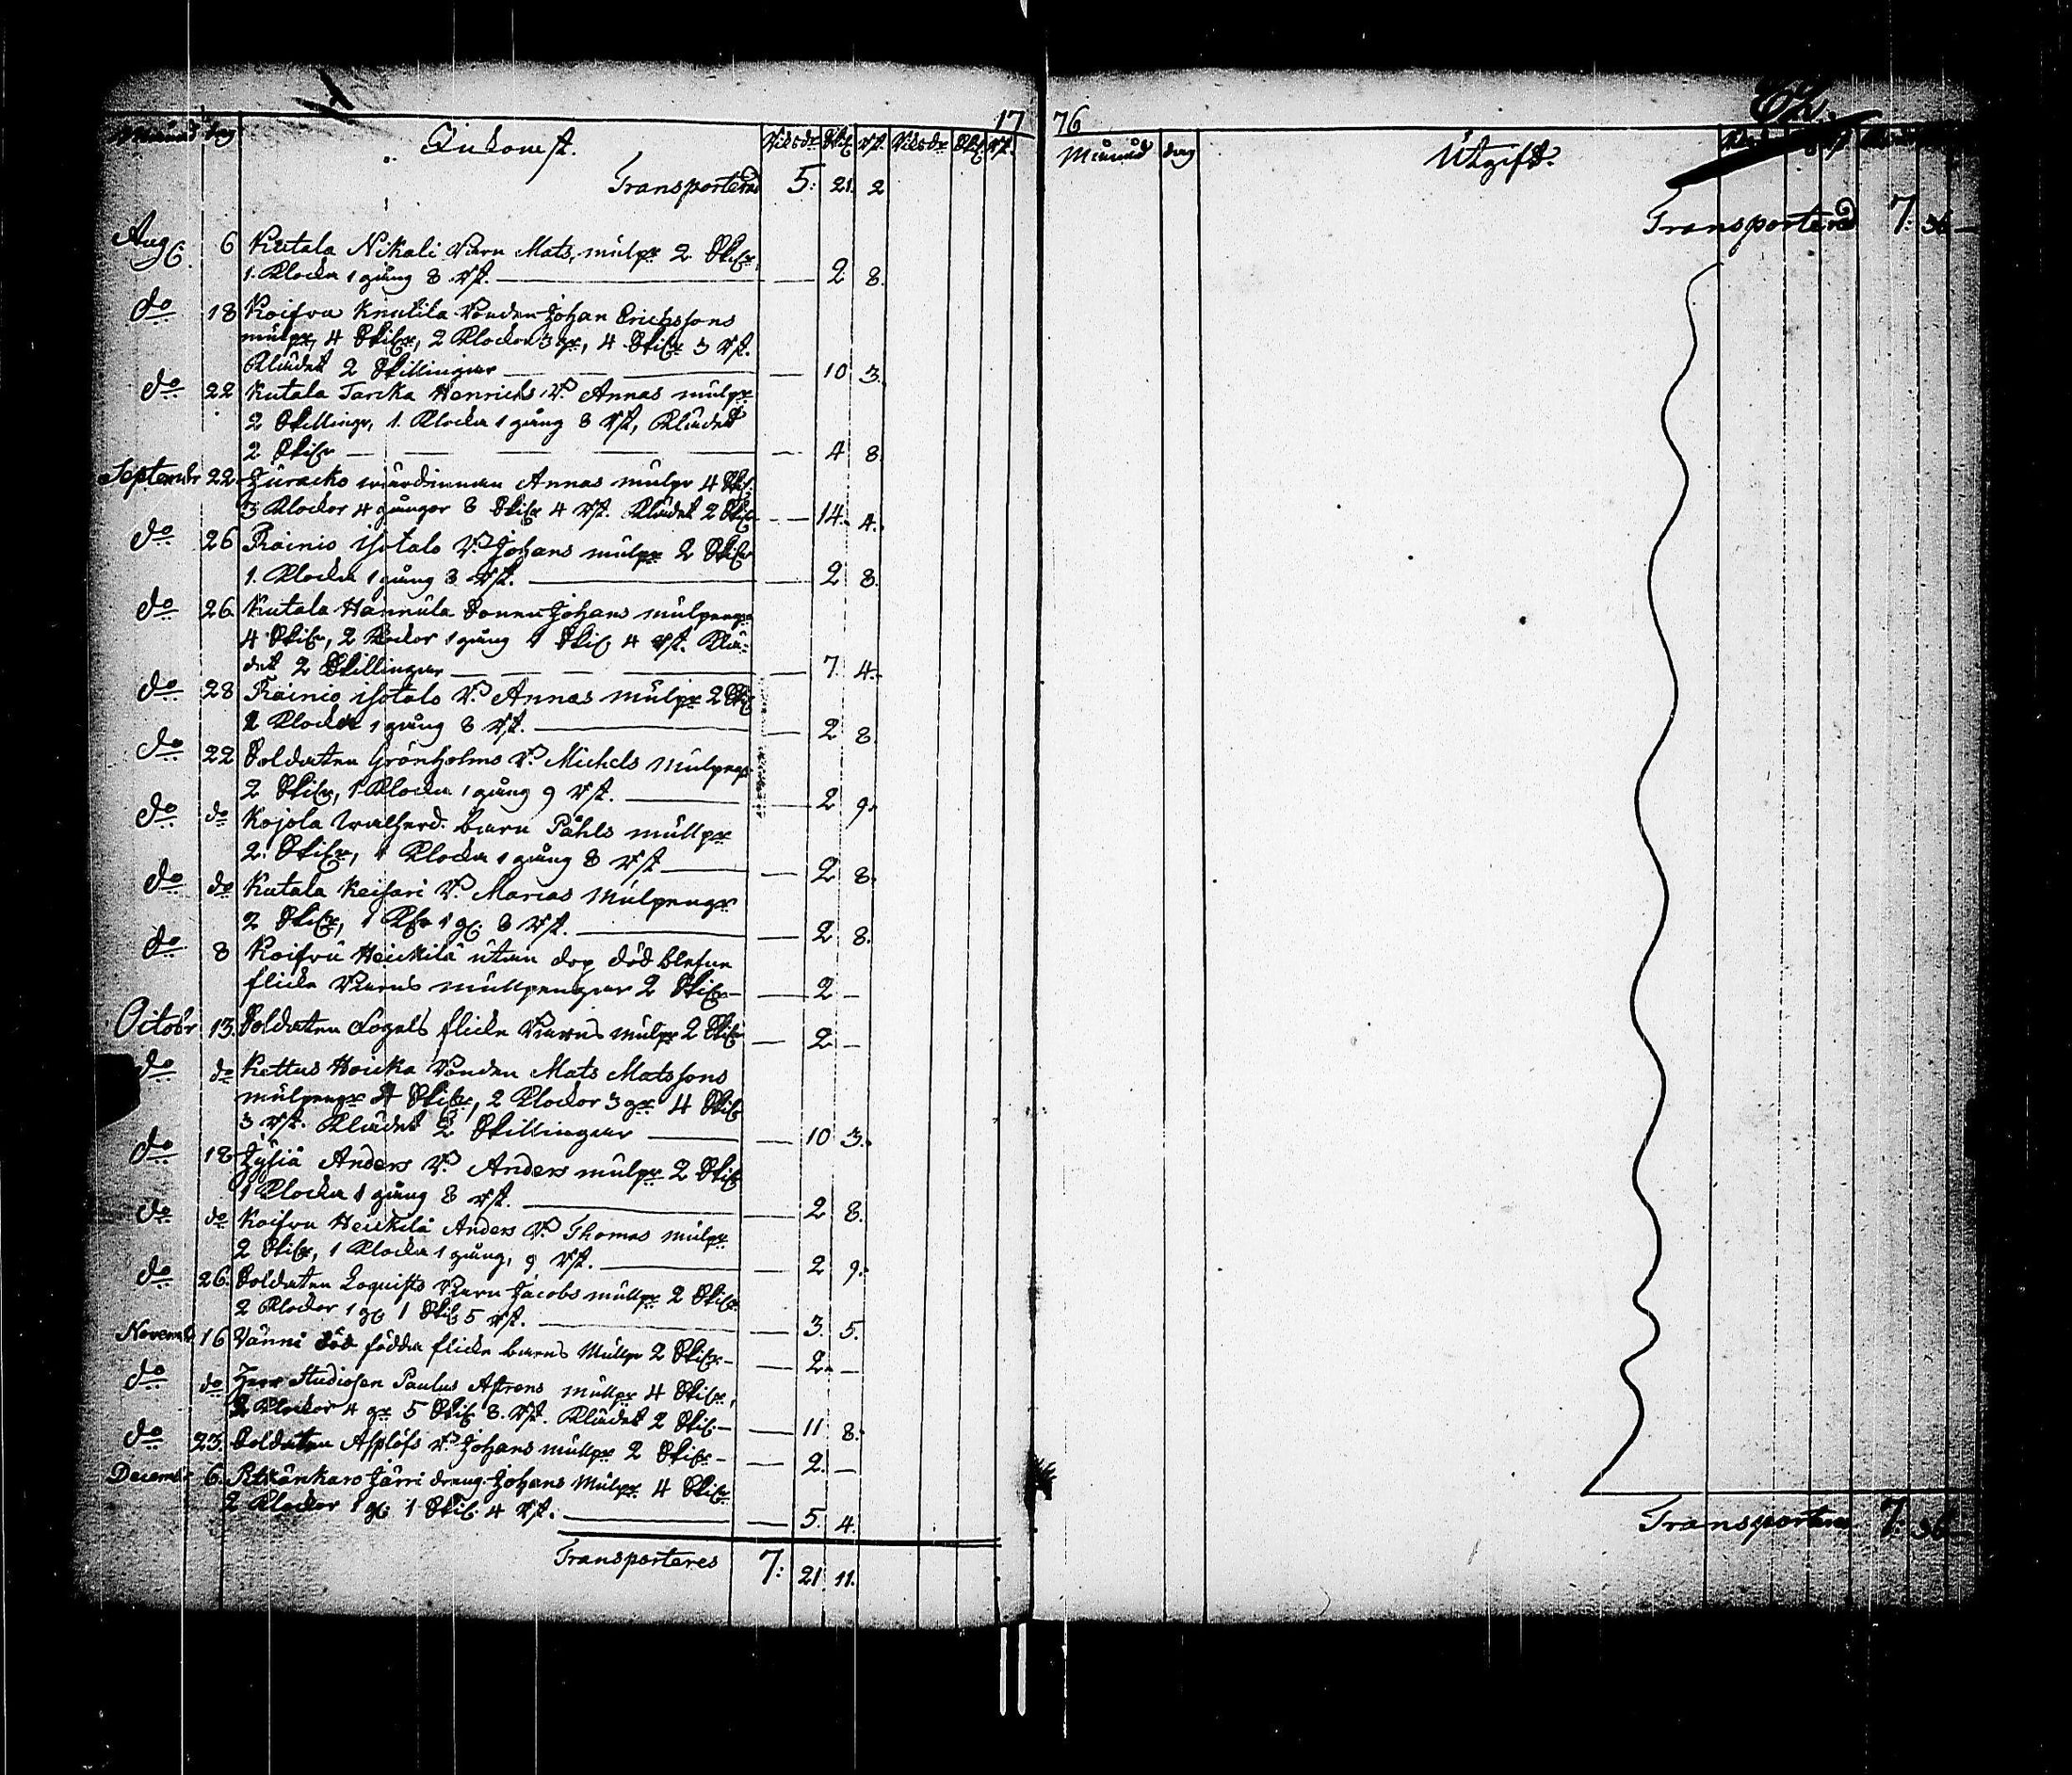 17
Månad dag Inkomst. Riksdr Skil rst. Riksdr Skil rst.
Transporterad 5: 21. 2
Aug 6 Kutala Nikali Barn Mats, mulpr 2 Skilr,
1. Klocka 1 gång 8 rst. 2 8.
do 18 Koifvu Knutila Bonden Johan Erichssons
mulpr, 4 Skilr, 2 Klockor 3 gr, 4 Skilr 3 rst.
Klädet 2 Skillingar 10 3.
do 22 Kutala Tarcka Henrichs B. Annas mulpr
2 Skillingr, 1. Klocka 1 gång 8 rst, Klädet
2 Skilr 4 8.
Septembr 22 Juracko wärdinnan Annas mulpr 4 Skil.
3 Klockor 4 gånger 8 Skilr 4 rst. Klädet 2 Skilr 14. 4.
do 26 Rainio isotalo B. Johans mulpr 2 Skilr
1. Klocka 1 gång 8 rst. 2 8.
do 26. Kutala Hannula Sonen Johans mulpengr
4 Skilr, 2 Klockor 1 gång 1 Skil 4 rst. Klä-
det 2 Skillingar 7. 4.
do 28 Rainio isotalo B. Annas mulpr 2 Skil
1 Klocka 1 gång 8 rst. 2 8.
do 22 Soldaten Grönholms B. Michels Mulpengr
2 Skilr, 1 Klocka 1 gång 9 rst. 2 9.
do do Kojola barn Påhls mullpr
2. Skilr, 1 Klocka 1 gång 8 rst 2 8.
do do Kutala Keisari B. Marias Mulpengr
2 Skilr, 1 Kl 1 g. 8 rst. 2 8.
do 8 Koifvu Heickilä utan dop död blefne
flicke Barns mullpengar 2 Skilr 2 –
Octobr 13. Soldaten flicke Barns mulpr 2 Skilr 2 –
do do Kettus Hoicka Bonden Mats Matssons
mulpengr 4 Skilr, 2 Klockor 3 gr 4 Skilr
3 rst. Klädet 2 Skillingar 10 3.
do 18 Jyliä Anders B. Anders mulpr 2 Skilr
1 Klocka 1 gång 8 rst. 2 8.
do do Koifvu Heickilä Anders B. Thomas mulpr
2 Skilr, 1 Klocka 1 gång, 9 rst. 2 9.
do 26. Soldaten Barn Jacobs mullpr 2 Skilr
2 Klockor 1 g 1 Skil 5 rst. 3. 5.
Novemb 16 Vänni död födda flicke barns Mullpr 2 Skilr 2. –
do do Herr Studiosen Paulus Astrens mullpr 4 Skilr,
2 Klockor 4 gr 5 Skil 8. rst. Klädet 2 Skil. 11 8.
do 23. Soldaten Asplöfs B. Johans mullpr 2 Skilr 2. –
Decembr 6. Järri dreng Johans Mulpr 4 Skilr
2 Klockor 1 g. 1 Skil. 4 rst. 5. 4.
Transporteres 7: 21 11.
76
Månad dag Utgift.
Transporterad 7: 36 –
Transporteres 7: 36 –